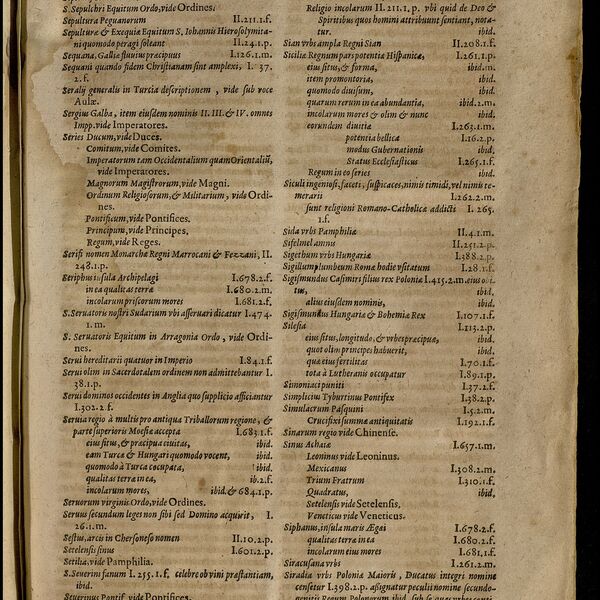 S. Sepulchri Equitum Ordo, vide Ordines.
Sepultura Peguanorum II.211.1.f.
Sepulturæ & Exequiæ Equitum S. Iohannis Hierosolymita-
ni quomodo peragi soleant II.24.1.p.
Sequana, Galliæ fluvius præcipuus I.126.1.m.
Sequani quando fidem Christianam sint amplexi, I. 37.
2.f.
Seralij generalis in Turcia descriptionem, vide sub voce
Aulæ.
Sergius Galba, item eiusdem nominis II. III. & IV. omnes
Impp. vide Imperatores.
Series Ducum, vide Duces.
Comitum, vide Comites.
Imperatorum tam Occidentalium quam Orientaliũ,
vide Imperatores.
Magnorum Magistrorum, vide Magni.
Ordinum Religiosorum, & Militarium, vide Ordi-
nes.
Pontificum, vide Pontifices.
Principum, vide Principes,
Regum, vide Reges.
Serifi nomen Monarchæ Regni Marrocani & Fezzani, II.
248.1.p.
Seriphus insula Archipelagi I.678.2.f.
in ea qualitas terræ I.680.2.m.
incolarum priscorum mores I.681.2.f.
S. Seruatoris nostri Sudarium vbi asseruari dicatur I.474.
1.m.
S. Seruatoris Equitum in Arragonia Ordo, vide Ordi-
nes.
Serui hereditarii quatuor in Imperio I.84.1.f.
Serui olim in Sacerdotalem ordinem non admittebantur I.
38.1.p.
Serui dominos occidentes in Anglia quo supplicio afficiantur
I.302.2.f.
Seruia regio à multis pro antiqua Triballorum regione, &
parte superioris Mœsiæ accepta I.683.1.f.
eius situs, & præcipua ciuitas, ibid.
eam Turcæ & Hungari quomodo vocent, ibid.
quomodo à Turca occupata, ibid.
qualitas terræ in ea, ib.2.f.
incolarum mores, ibid. & 684.1.p.
Seruorum virginis Ordo, vide Ordines.
Seruus secundum leges non sibi sed Domino acquirit, I.
26.1.m.
Sestus, arcis in Chersoneso nomen II.10.2.p.
Setelensis sinus I.601.2.p.
Setilia, vide Pamphilia.
S. Seuerini fanum I.255.1.f. celebre ob vini præstantiam,
ibid.
Seuerinus Pontif. vide Pontifices.
Religio incolarum II.211.1.p. vbi quid de Deo &
Spiritibus quos homini attribuunt sentiant, nota-
tur. ibid.
Sian vrbs ampla Regni Sian II.208.1.f.
Siciliæ Regnum pars potentiæ Hispanicæ, I.261.1.p.
eius situs, & forma, ibid.m.
item promontoria, ibid.
quomodo diuisum, ibid.
quarum rerum in ea abundantia, ibid.2.m.
incolarum mores & olim & nunc ibid.
eorundem diuitiæ I.263.1.m.
potentia bellica I.16.2.p.
modus Gubernationis ibid.
Status Ecclesiasticus I.265.1.f.
Regum in eo series ibid.
Siculi ingeniosi, faceti, suspicaces, nimis timidi, vel nimis te-
merarii I.262.2.m.
sunt religioni Romano-Catholicæ addicti I. 265.
1.f.
Sida vrbs Pamphiliæ II.4.1.m.
Sifelmel amnus II.251.2.p.
Sigethum vrbs Hungariæ I.388.2.p.
Sigillum plumbeum Romæ hodie vsitatum I.28.1.f.
Sigismundus Casimiri filius rex Poloniæ I.415.2.m. eius
tus, ibid.
alius eiusdem nominis, ibid.
Sigismundus Hungariæ & Bohemiæ Rex I.107.1.f.
Silesia I.213.2.p.
eius situs, longitudo, & vrbes præcipuæ, ibid.
quot olim principes habuerit, ibid.
quæ eius fertilitas I.70.1.f.
tota à Lutheranis occupatur I.89.1.p.
Simoniaci puniti I.37.2.f.
Simplicius Tyburtinus Pontifex I.38.2.p.
Simulacrum Pasquini I.5.2.m.
Crucifixi summæ antiquitatis I.192.1.f.
Sinarum regio vide Chinense.
Sinus Achaiæ I.657.1.m.
Leoninus vide Leoninus.
Mexicanus I.308.2.m.
Trium Fratrum I.310.1.f.
Quadratus, ibid.
Setelensis vide Setelensis.
Veneticus vide Veneticus.
Siphanus, insula maris Ægæi I.678.2.f.
qualitas terræ in ea I.680.2.f.
incolarum eius mores I.681.1.f.
Siracusana vrbs I.261.2.m.
Siradia vrbs Poloniæ Maioris, Ducatus integri nomine
censetur I.398.2.p. assignatur peculii nomine secundo-
genitis Regum Polonorum ibid. sub se quas vrbes com-